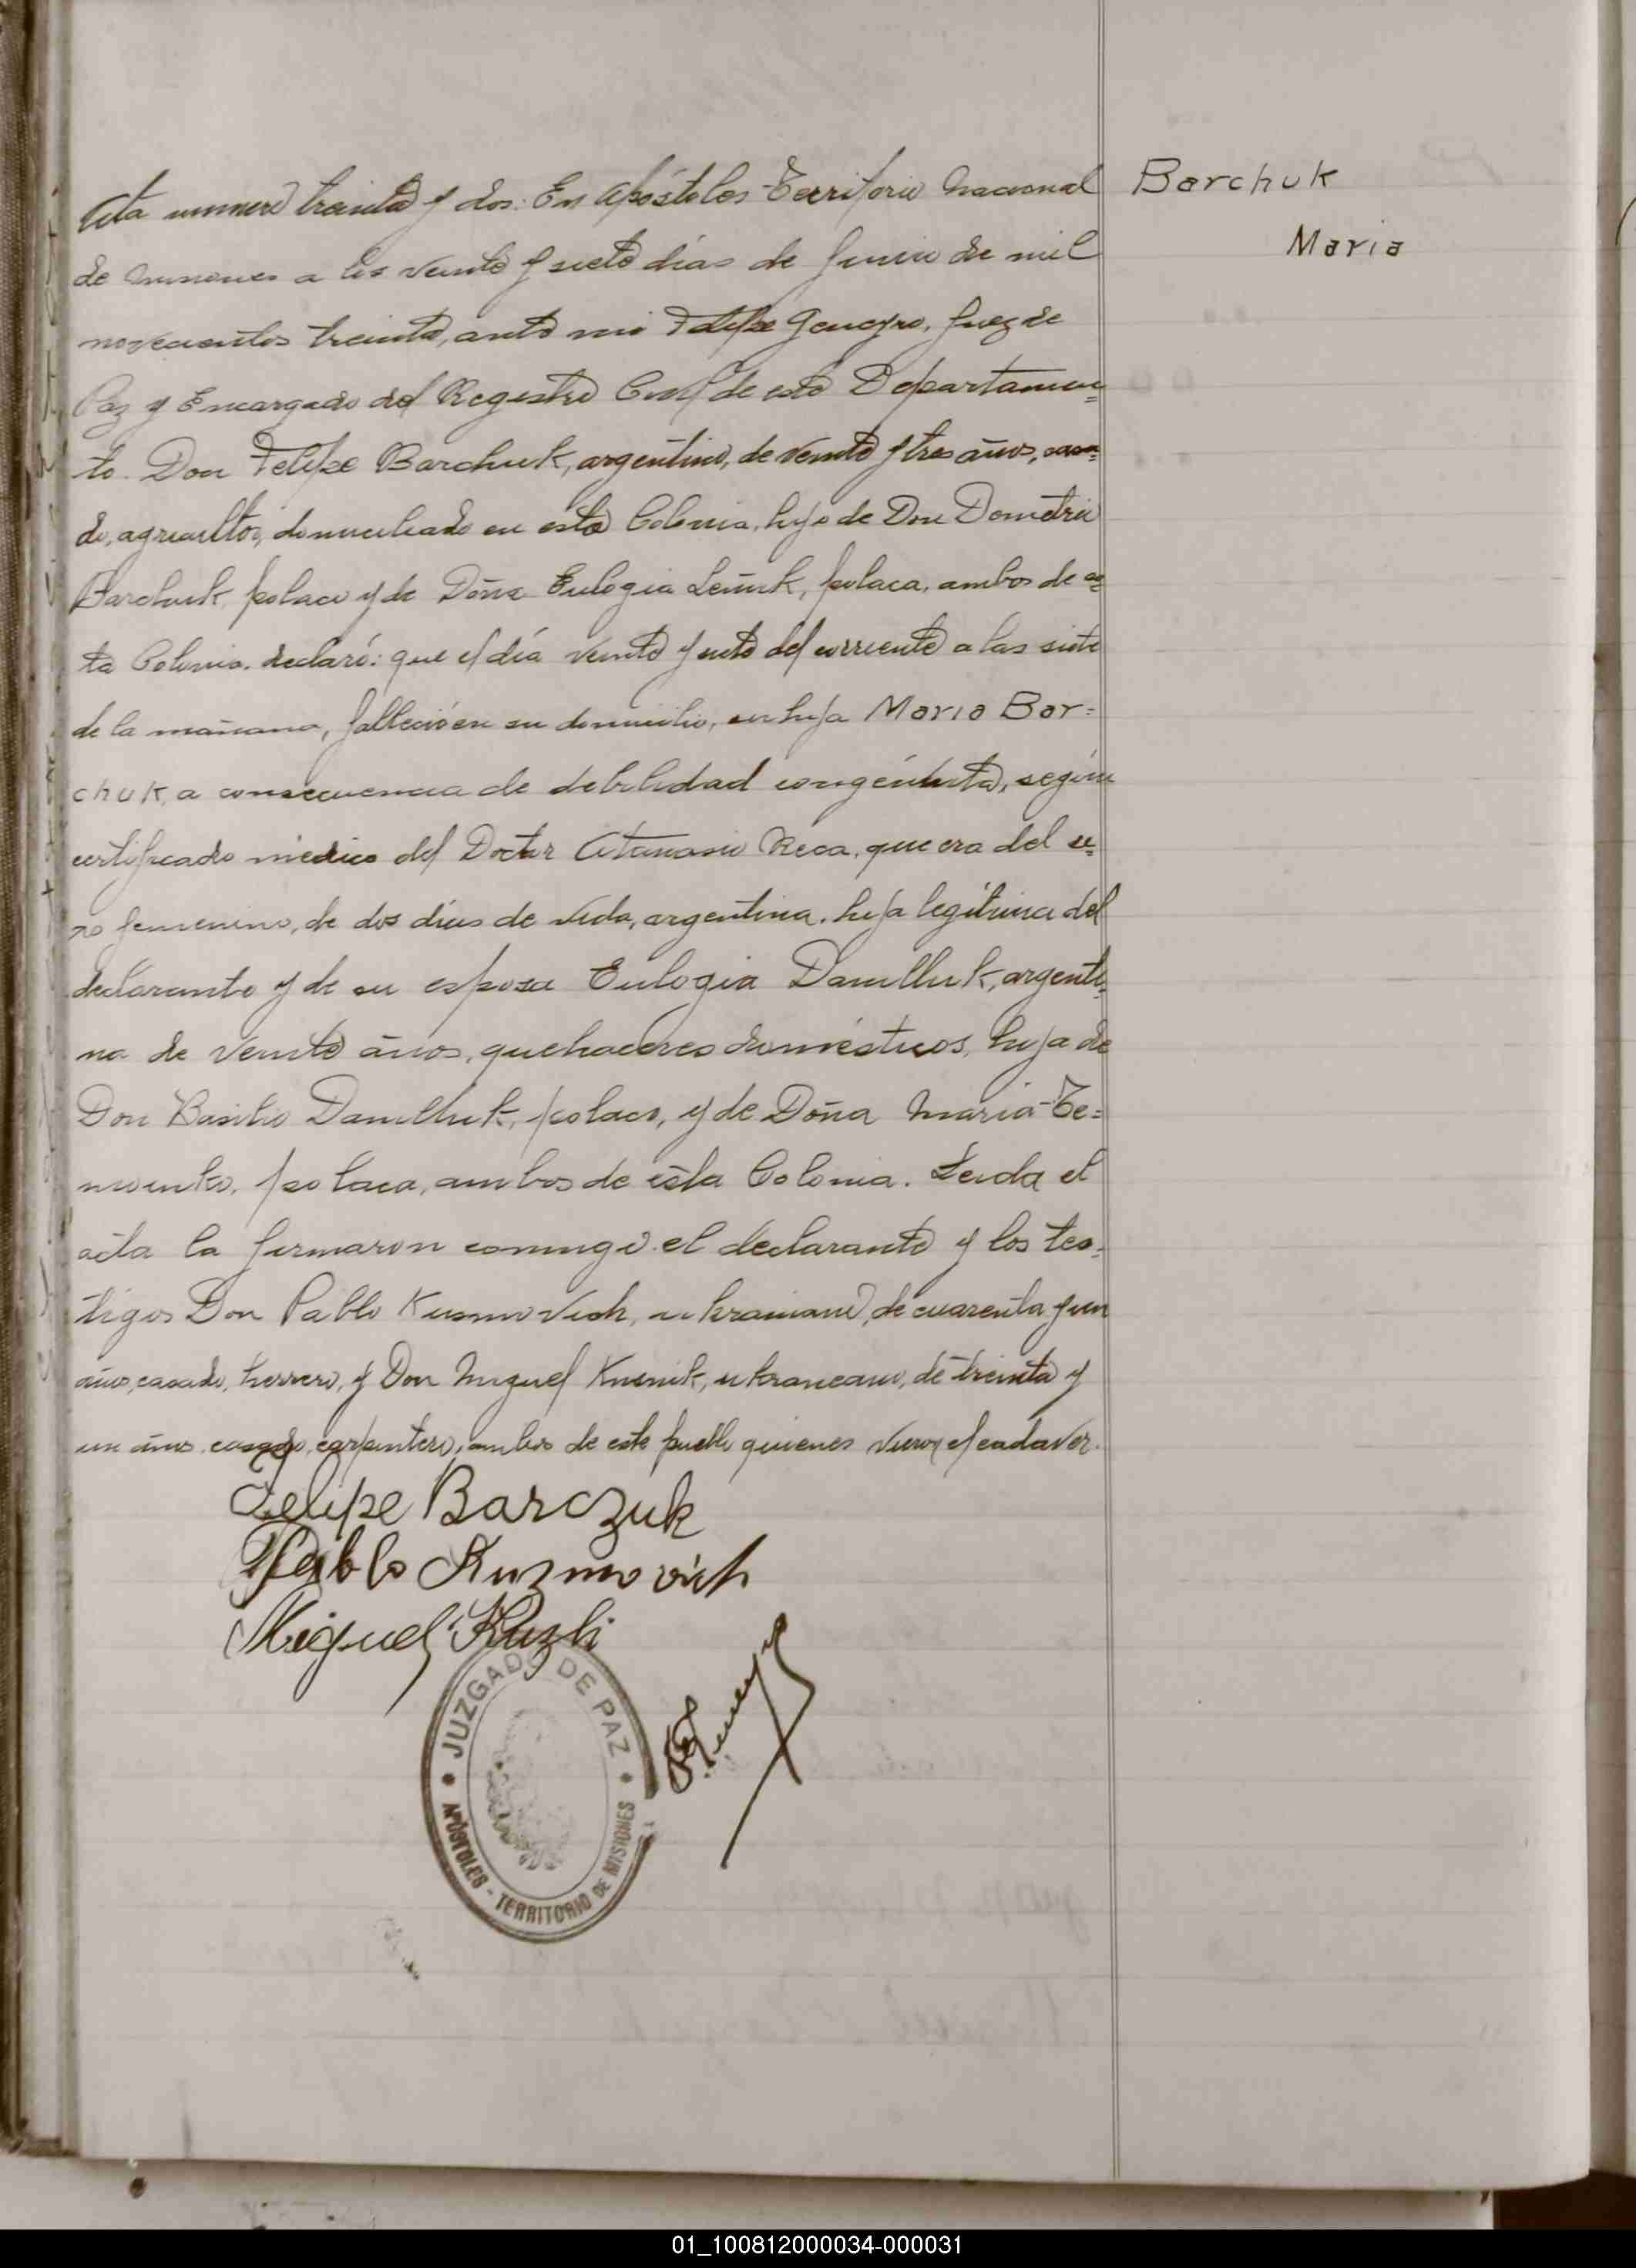 Barchuk
Maria
Acta numero treinta y dos: En Apóstoles Territorio Nacional
de Misiones a los veinte y siete días de Junio de mil
novecientos treinta, ante mi Felipe Genayro, Juez de
Paz y Encargado del Registro Civil de este Departamen=
to. Don Felipe Barchuk, argentino, de veinte y tres años, casa=
do, agricultor, domiciliado en esta Colonia, hijo de Don Demetrio
Barchuk, polaco y de Doña Eulogia polaca, ambos de es=
ta Colonia, declaró: que el día veinte y siete del corriente a las siete
de la mañana, falleció en su domicilio, su hija Maria Bar=
chuk, a consecuencia de debilidad congénita, según
certificado médico del Doctor Atanasio Reca, que era del se=
xo femenino, de dos días de vida, argentina, hija legítima del
declarante y de su esposa Eulogia Danilluk, argenti=
na de veinte años, quehaceres domésticos, hija de
Don Basilio Danilluk, polaco, y de Doña Maria Te=
polaca, ambos de esta Colonia. Leida el
acta la firmaron conmigo el declarante y los tes=
tigos Don Pablo Kusmovich, ukraniano, de cuarenta y un
años, casado, herrero, y Don Miguel Kusnik, ukraneano, de treinta y
un años, casado, carpintero, ambos de este pueblo quienes vieron el cadaver.
Felipe Barczuk
Pablo Kuzmovich
Miguel Kuzki
JUZGADO DE PAZ
APÓSTOLES - TERRITORIO DE MISIONES
01_100812000034-000031